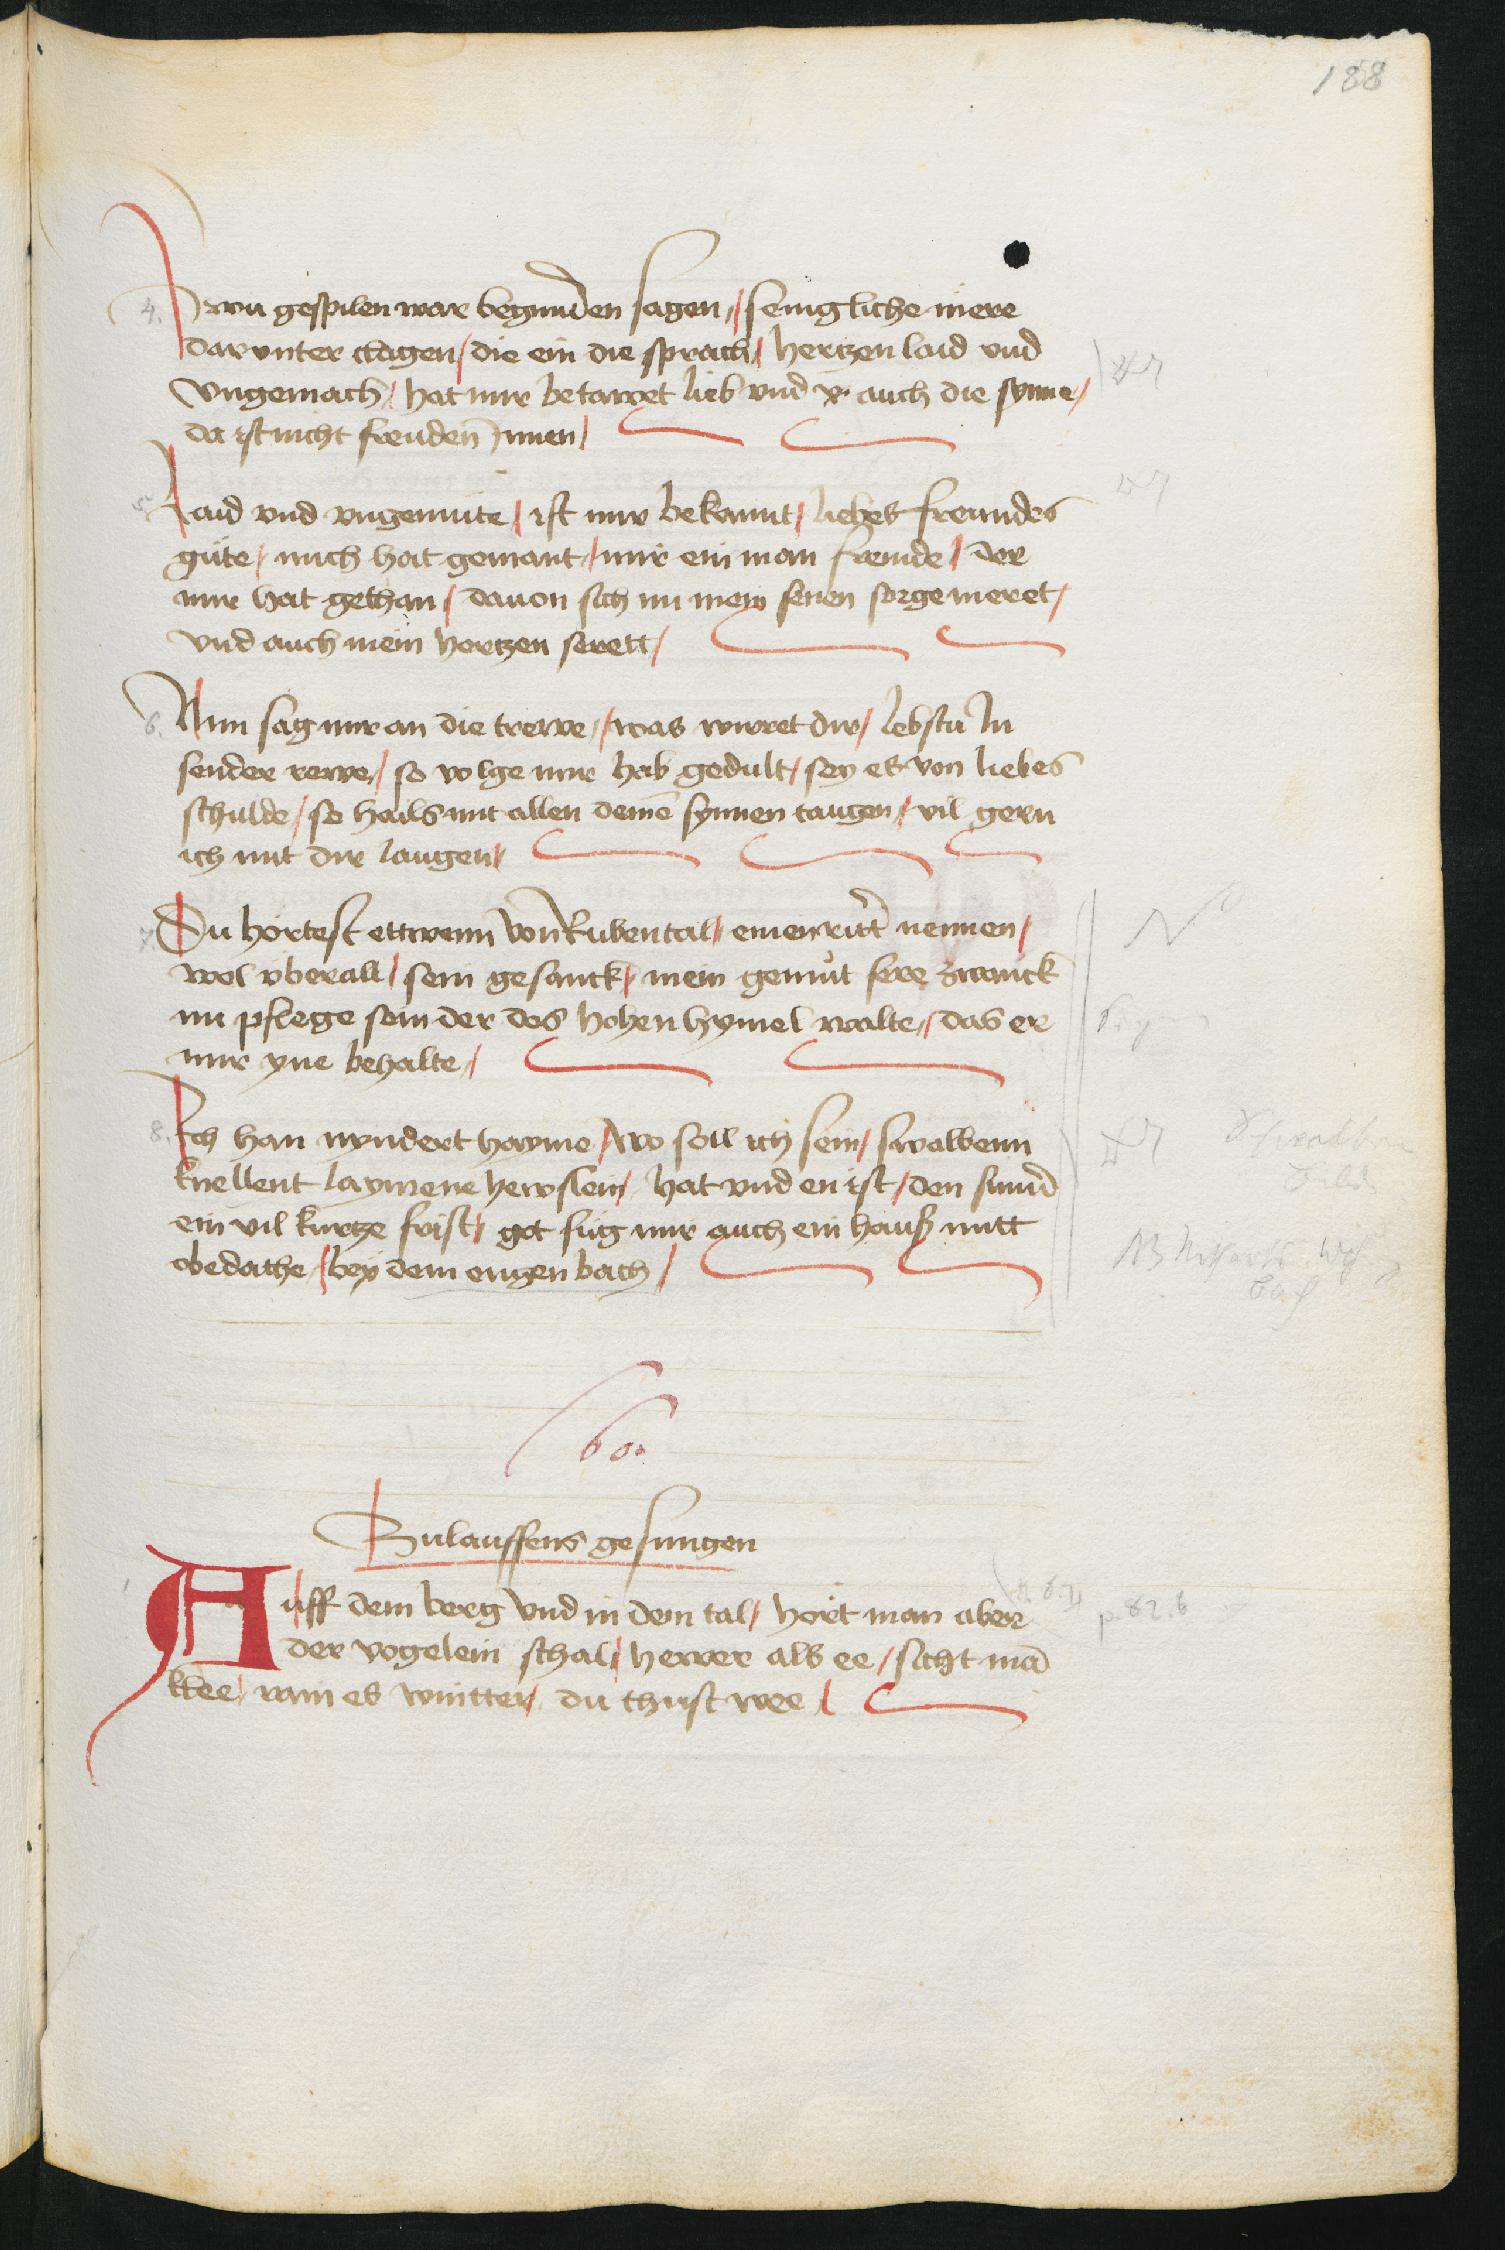 188
4. Zwu gespilen war begunden sagen / seniigliche mere
darvnter clagen / die ein die sprach / hertzen laid vnd
vngemach / hat mir betawet lieb vnd auch die synne /
da ist nicht freuden Innen /
5. Laid vnd vngemüte / ist mir bekannt / liebes freundes
güte / mich hat gemant / mir ein man fremde / der
mir hat gethan / dauon sich mein senen sorge meret /
vnd auch mein hertzen serett /
6. Nun sag mir an die trewe / was wirret dir / lebstu In
sender rewe / so volge mir hab gedult / sey es von liebes
schulde / so hails mit allen deinē synnen taugen / vil gern
ich mit dir laugen /
7. Du hörtest ettwenn von Rubental / einen ritter nennen /
wol vberall / sein gesanck / mein gemüt sere zwanck
nu pflege sein der des hohen hymel walte / das er
mir yne behalte /
8. Ich han nyndert hayme / wo soll ich sein / swalbenn
knellent laymene hewslein / hat vnd en ist / den sumd
ein vil kurtze frist / got füg mir auch ein hauß mitt
obedache / bey dem engen bach /
60.
Zulauffens gesungen
Auff dem berg vnd in dem tal / hört man aber
der vogelein schal / hewer als ee / sicht mā
klee / ram es wintter / du thust wee /
p. 82. 6